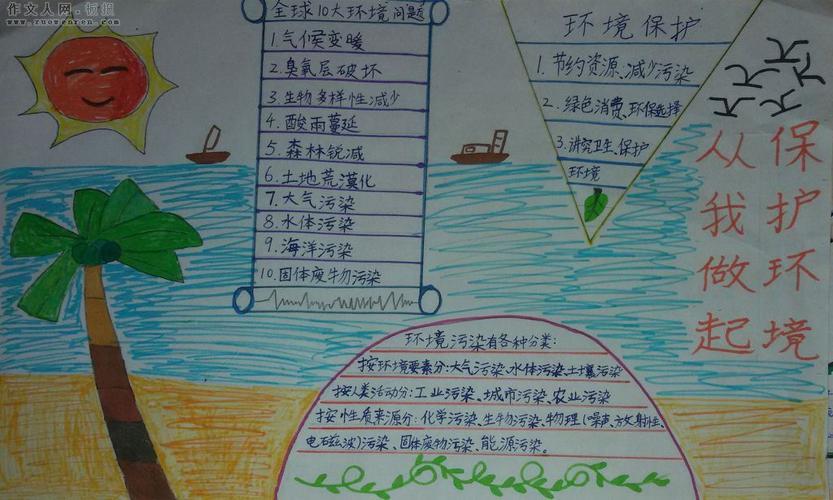 作文人网.板报
www.zuowenren.com
全球10大环境问题
1.气候变暖
2.臭氧层破坏
3.生物多样性减少
4.酸雨蔓延
5.森林锐减
6.土地荒漠化
7.大气污染
8.水体污染
9.海洋污染
10.固体废物污染
环境保护
1.节约资源、减少污染
2.绿色消费、环保选择
3.讲究卫生、保护
环境
保护环境
从我做起
环境污染有各种分类:
按环境要素分:大气污染、水体污染、土壤污染
按人类活动分:工业污染、城市污染、农业污染
按性质来源分:化学污染、生物污染、物理(噪声、放射性、
电磁波)污染、固体废物污染、能源污染。